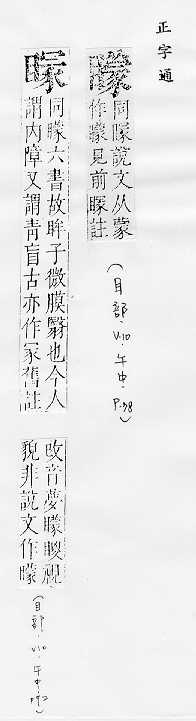 正字通
矇
同䁅說文从蒙
作矇見前䁅註
(目部.V.10.午中.P.98)
䁅
同矇六書故眸子微膜翳也今人
謂內障又謂青盲古亦作冡舊註
改音夢矇瞍視
貌非說文作矇
(目部.V10.午中.P.92)